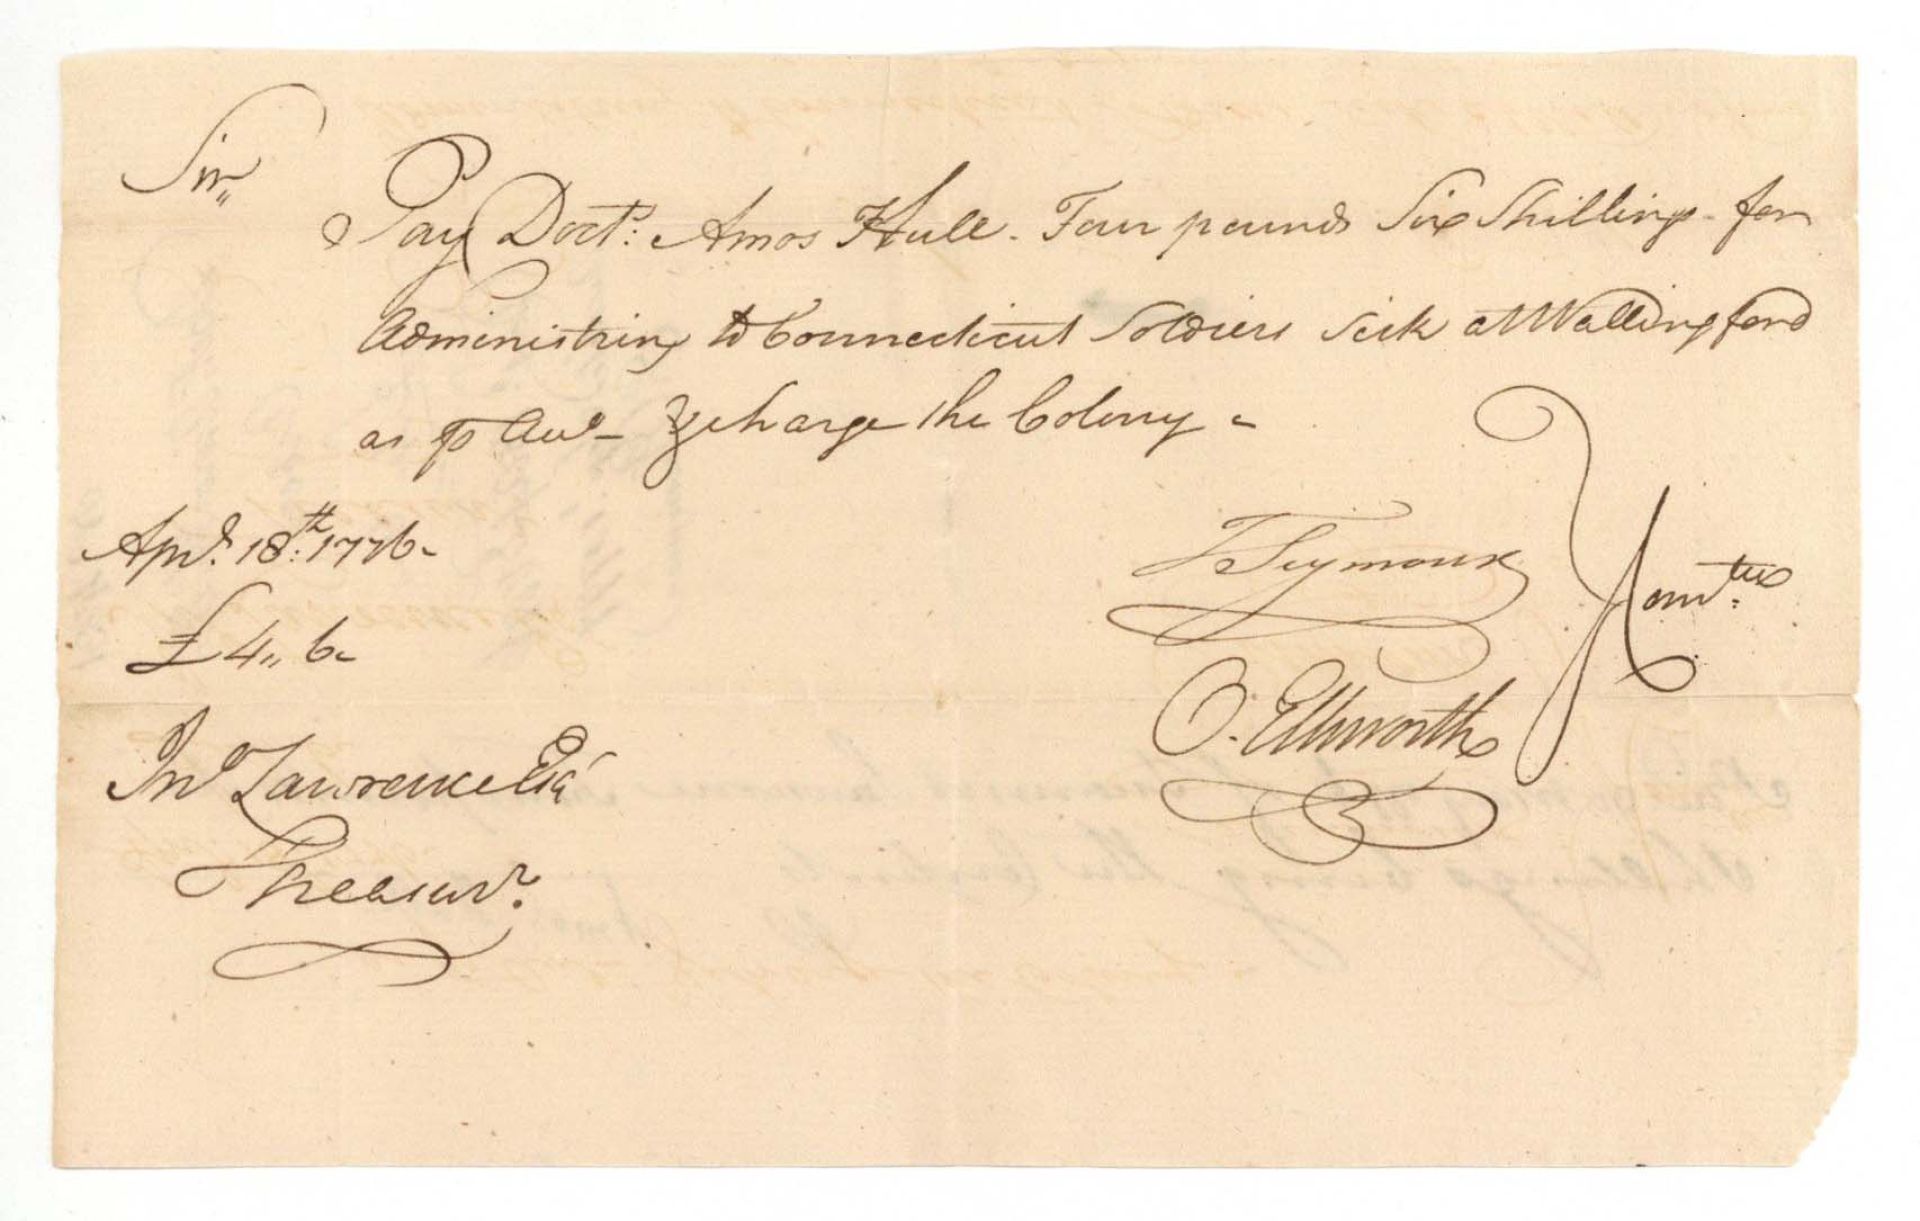 Sir,,
Pay Doct.r Amos Hull. Four pounds Six Shillings for
Administring to Connecticut Soldiers Sick at Wallingford
as p Acc.o & charge the Colony
Apr.l 18.th 1776
£4,, 6
T Seymour
Com.tee
O. Ellsworth
Jn.o Lawrence Esq.r
Treasur.r